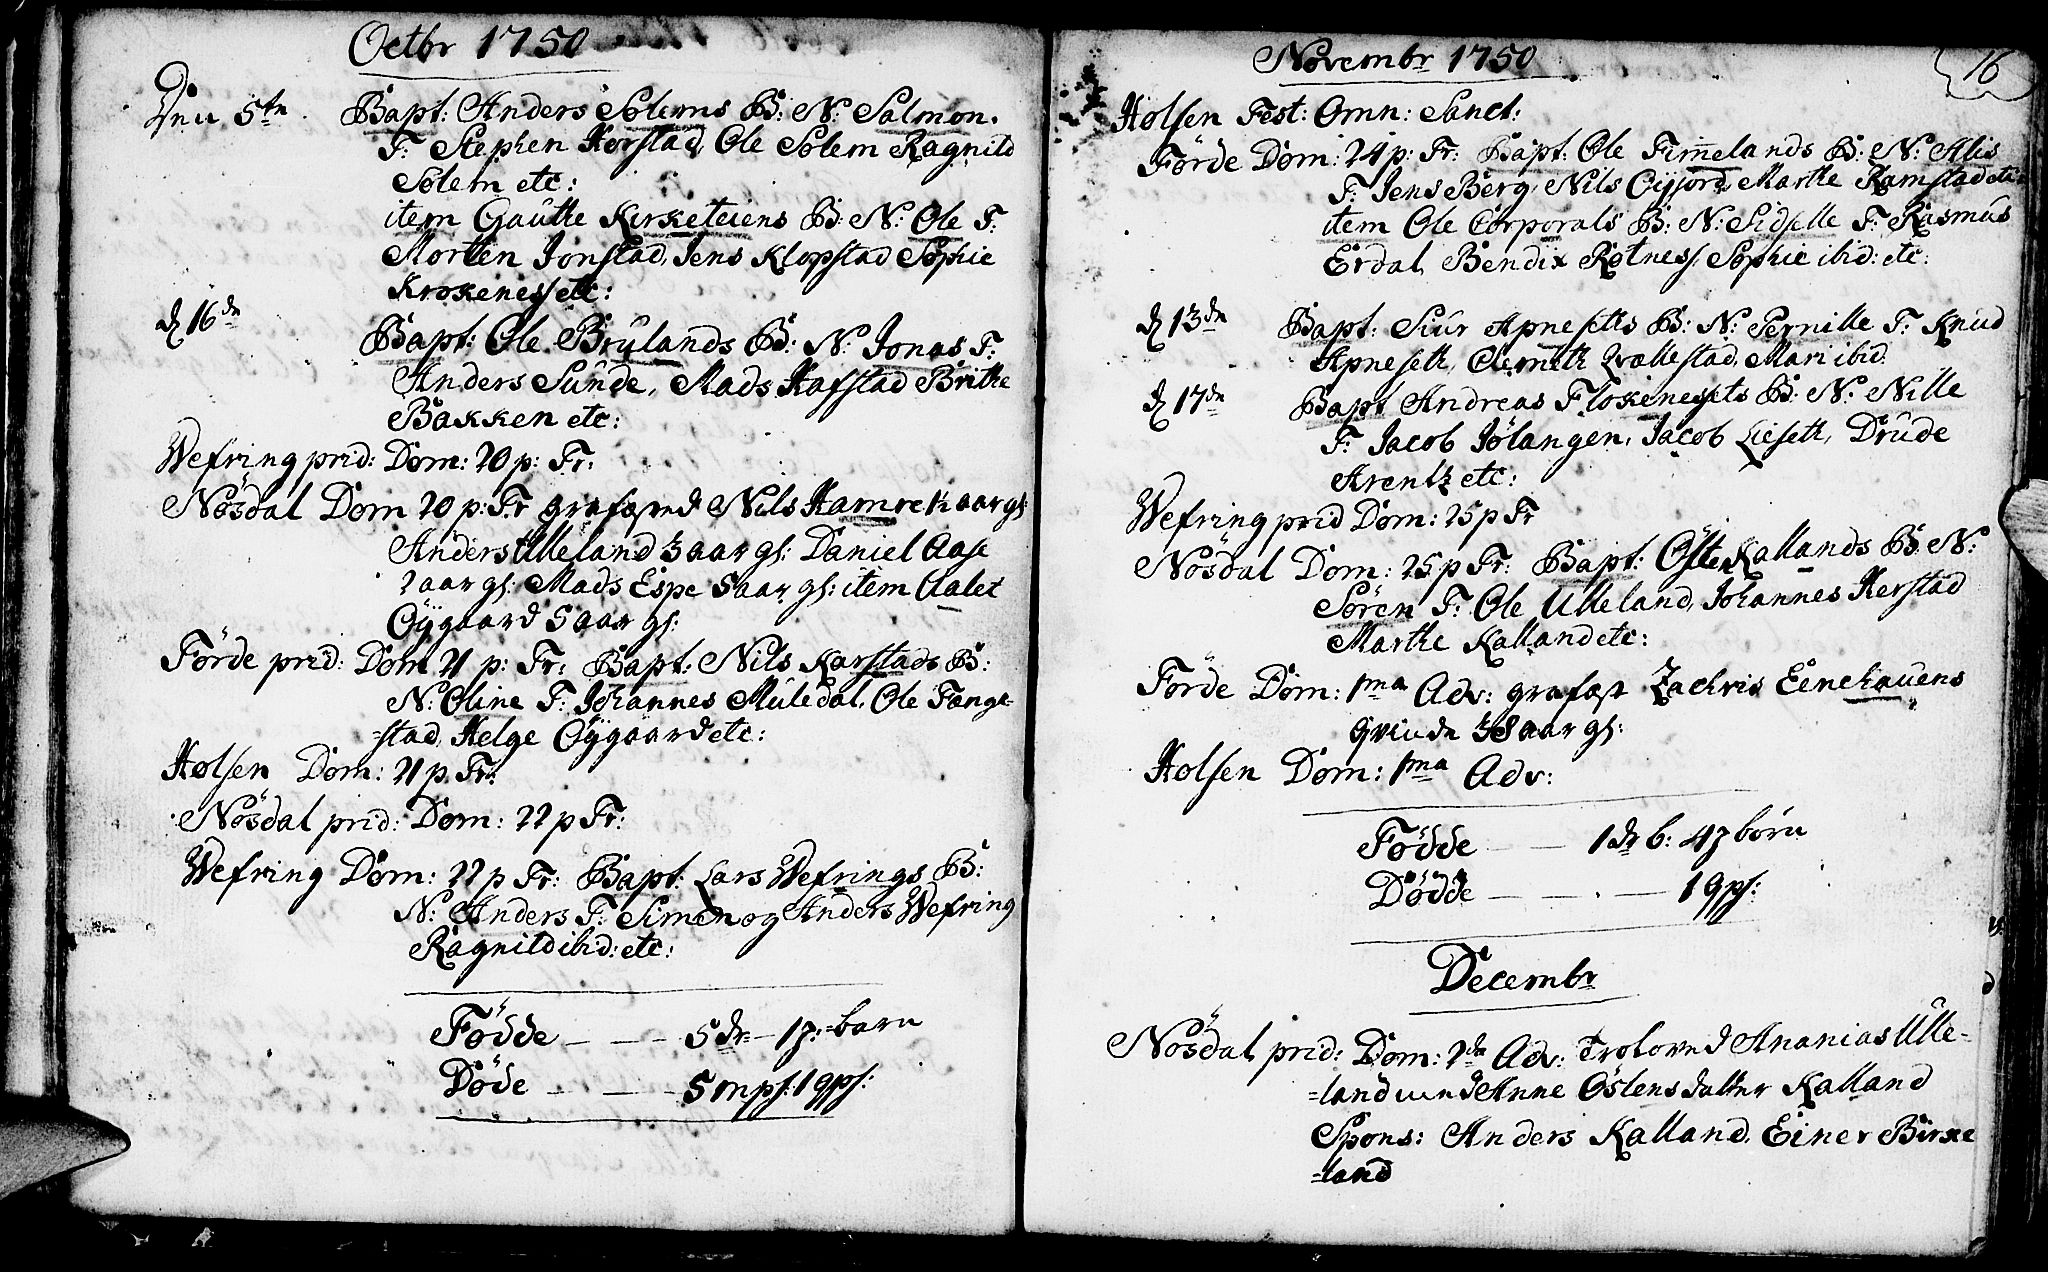 Octbr 1750
Den 5te Bapt: Anders Solems B: N: Salmon.
F: Stephen Horstad, Ole Solem Ragnild
Solem etc:
item Gauthe Kirketeiens B: N: Ole F:
Morten Jonstad, Jens Klopstad Sophie
Krokeness etc:
d 16de Bapt: Ole Brulands B: N: Jonas F:
Anders Sunde, Mads Hafstad Brithe
Bakken etc:
Wefring prid: Dom: 20 p: Tr:
Nøsdal Dom 20 p: Tr grafæsted Nils Hamre 1½ aar gl:
Anders Ulleland 3 aar gl: Daniel Aase
2 aar gl: Mads Espe 5 aar gl: item Aalet
Øygaard 5 aar gl:
Førde prid: Dom 21 p: Tr: Bapt: Nils Karstads B:
N: Oline F: Johannes Muledal, Ole Fange-
=stad, Helge Øygaard etc:
Holsen Dom: 21 p. Tr:
Nøsdal prid: Dom: 22 p Tr:
Wefring Dom: 22 p Tr: Bapt: Lars Wefrings B:
N: Anders F: Simen og Anders Wefring
Ragnild ibid: etc:
Fødde — — 5 dr — 1 p:=barn
Døde — — 5 mps: 1 qps:
Novembr 1750
16
Holsen Fest: Omn: Sanct:
Førde Dom: 24 p: Tr: Bapt: Ole Fimmelands B: N: Alis
F: Jens Berg, Nils Øyjord, Marthe Ramstad etc
item Ole Corporals B: N: Sidselle F: Rasmus
Erdal, Bendix Rotness: Sophie ibid: etc:
d 13de Bapt: Siur Apneseths B: N: Pernille F: Knud
Apneseth, Clemeth Qvallestad, Mari ibid
d 17de Bapt Andreas Flokenessets B: N: Nille
F: Jacob Jølangen, Jacob Lieseth, Drude
Arentz etc:
Wefring prid Dom: 25 p Tr
Nøsdal Dom: 25 p Tr: Bapt: Østen Kallands B: N:
Søren F: Ole Ulleland, Johannes Herstad
Marthe Kalland etc:
Førde Dom: 1ma Adv: grafæst Zachris Eenehauens
qvinde 38 aar gl:
Holsen Dom: 1ma Adv:
Fødde — — 1 dr b: 4 p børn
Dødde — — . — 1 qps:
Decembr
Nøsdal prid: Dom: 2de Adv: Troloved Ananias Ulle-
=land med Anne Østensdatter Kalland
Spons: Anders Kalland, Einer Birke
=land